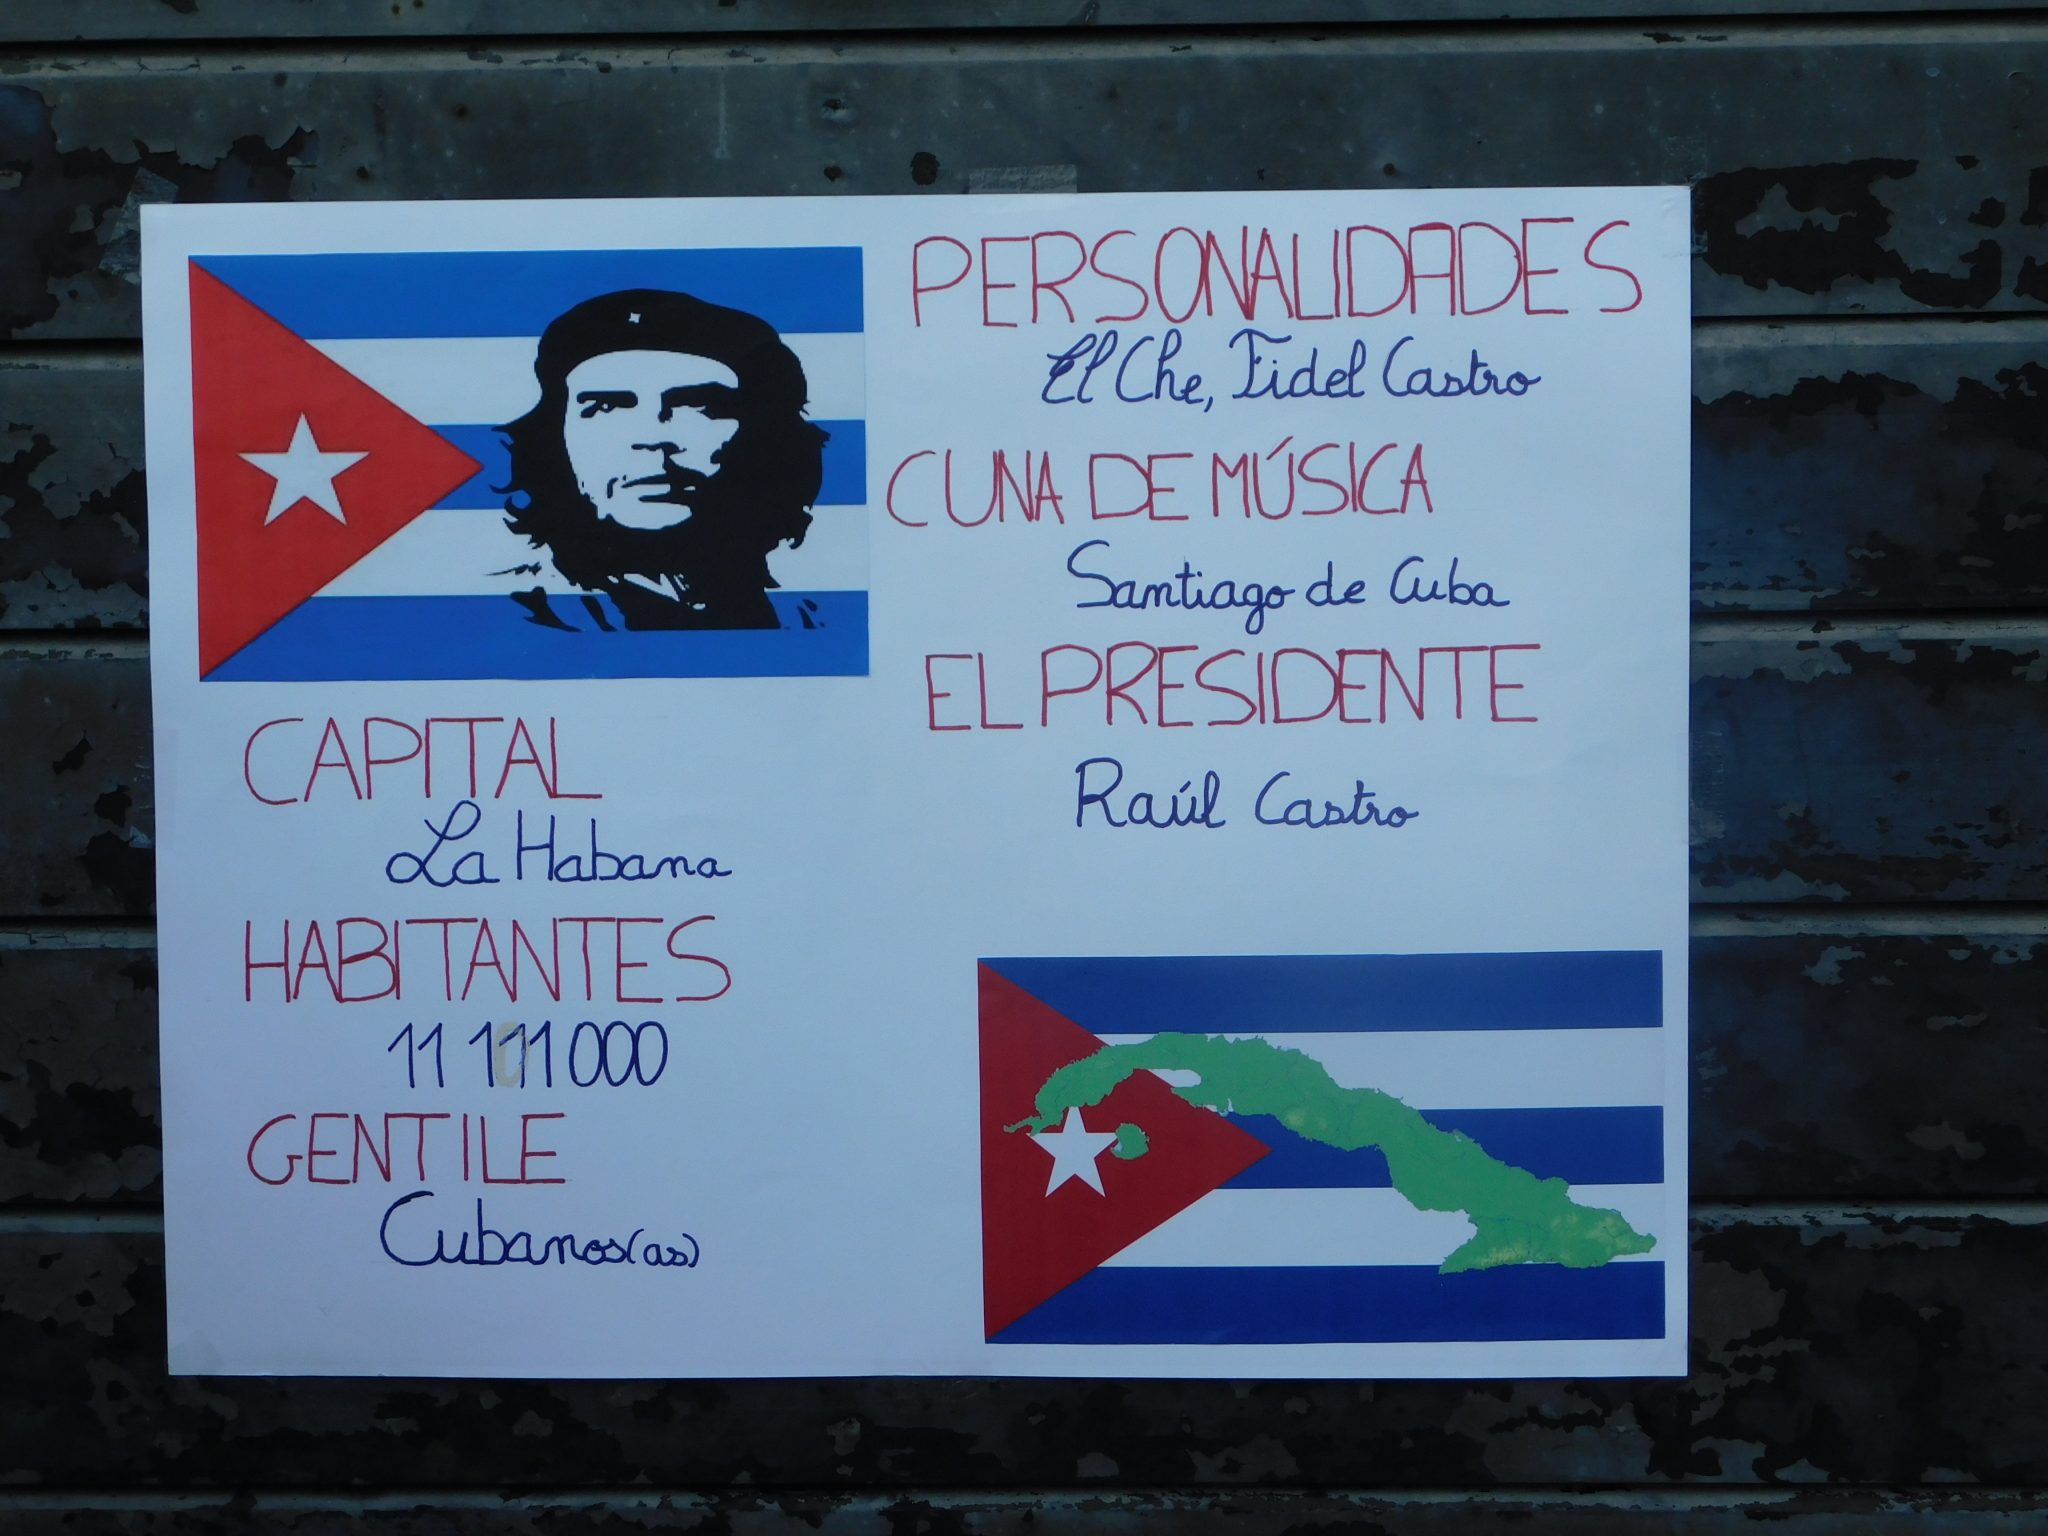 CAPITAL
La Habana
HABITANTES
11 111 000
GENTILE
Cubanos(as)
PERSONALIDADES
El Che, Fidel Castro
CUNA DE MÚSICA
Santiago de Cuba
EL PRESIDENTE
Raúl Castro